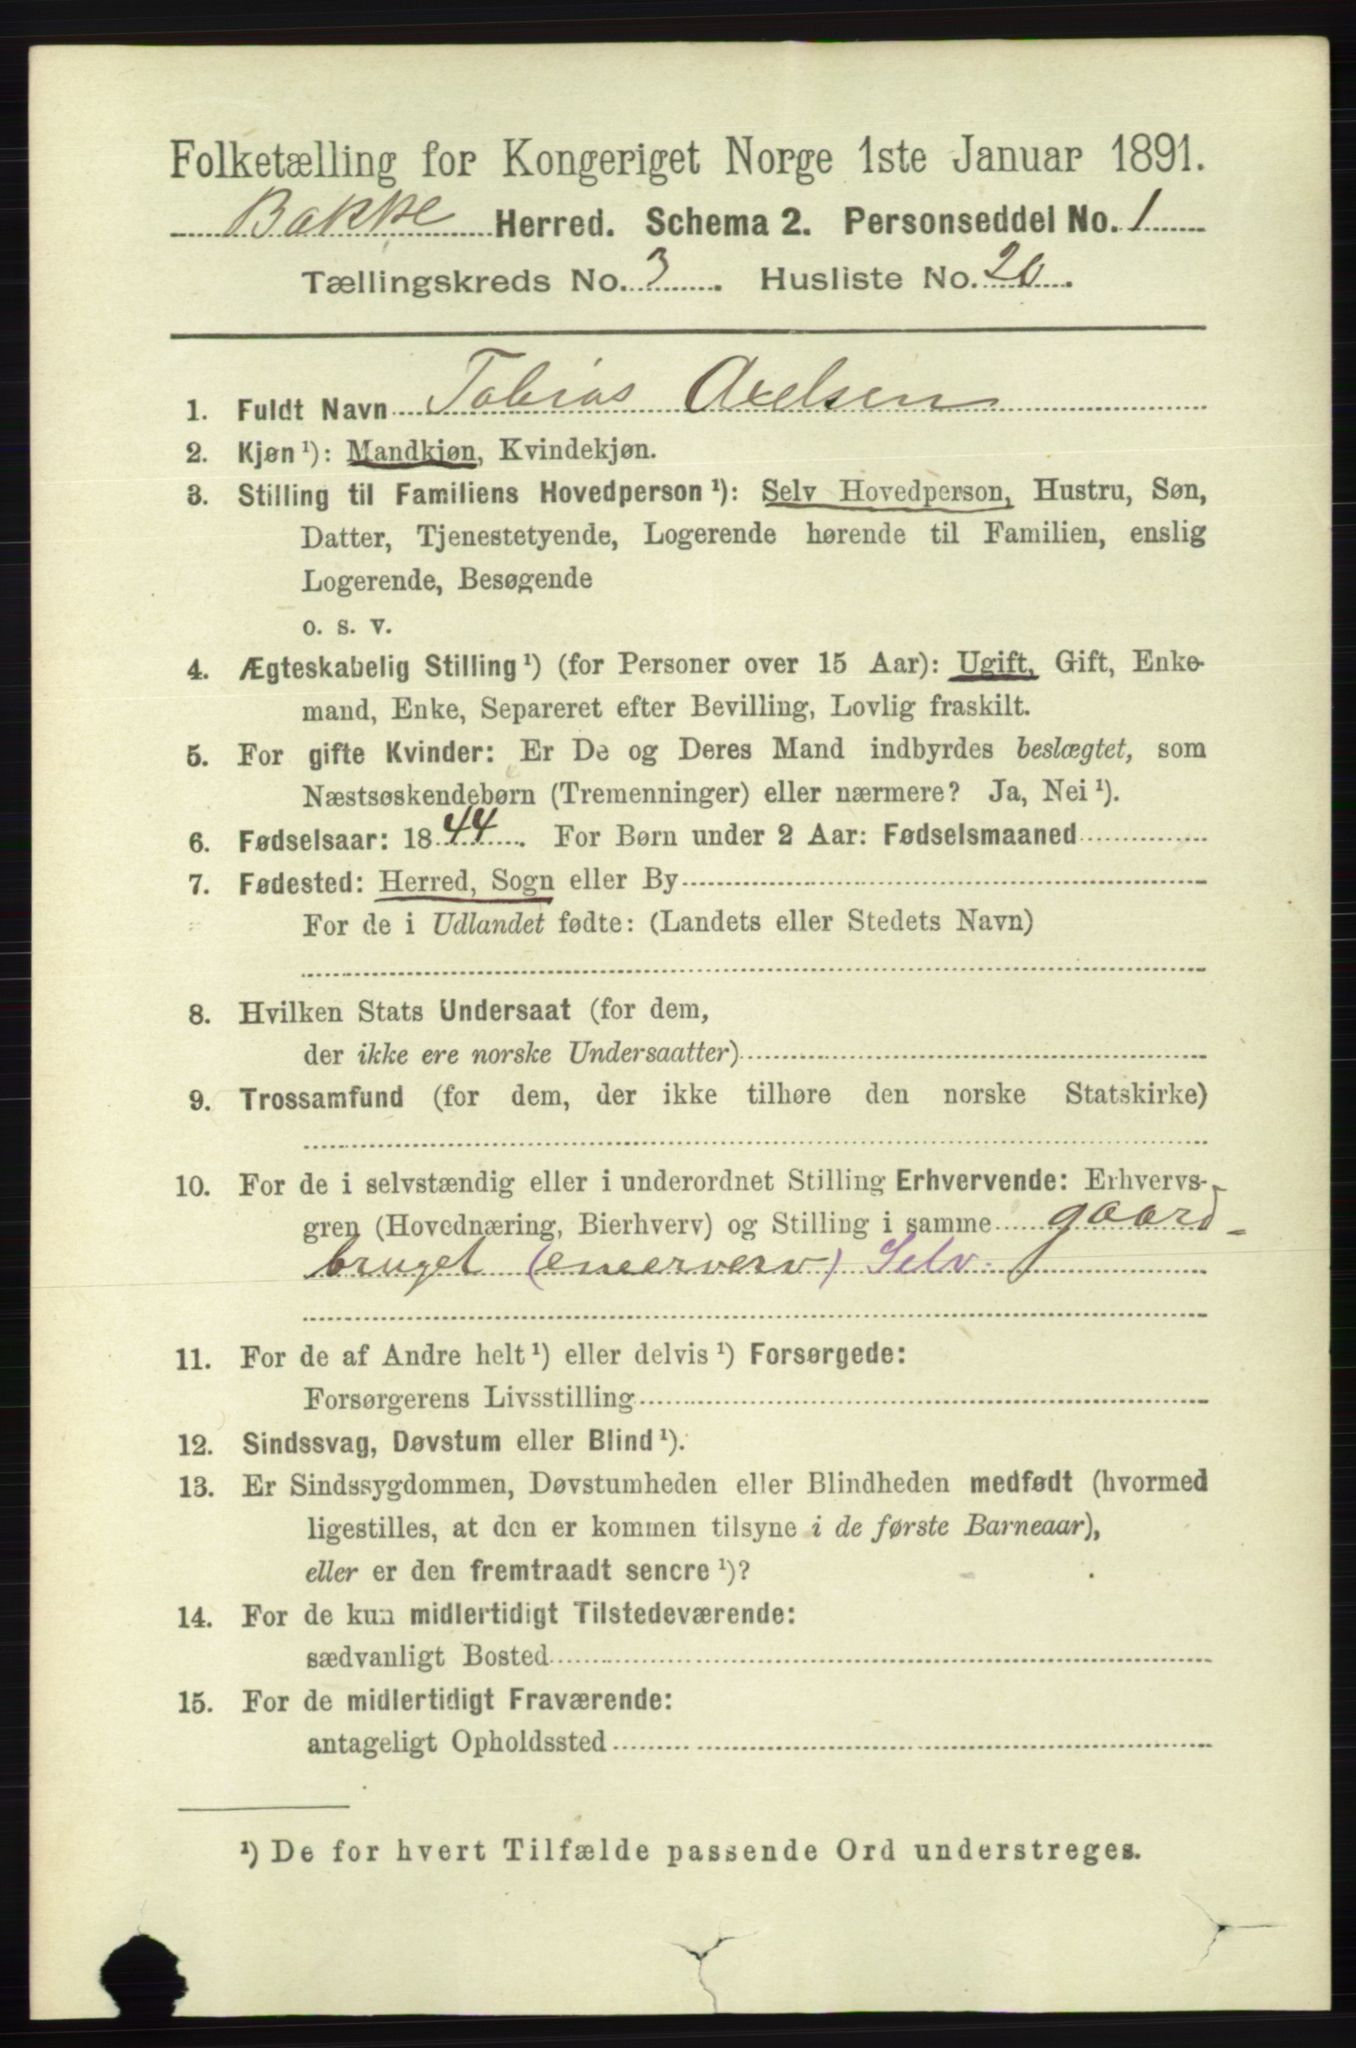 Folketælling for Kongeriget Norge 1ste Januar 1891.
Bakke Herred. Schema 2. Personseddel No. 1
Tællingskreds No. 3. Husliste No. 20.
1. Fuldt Navn Tobias Axelsen
2. Kjøn ¹): Mandkjøn, Kvindekjøn.
3. Stilling til Familiens Hovedperson ¹): Selv Hovedperson, Hustru, Søn,
Datter, Tjenestetyende, Logerende hørende til Familien, enslig
Logerende, Besøgende
o. s. v.
4. Ægteskabelig Stilling ¹) (for Personer over 15 Aar): Ugift, Gift, Enke-
mand, Enke, Separeret efter Bevilling, Lovlig fraskilt.
5. For gifte Kvinder: Er De og Deres Mand indbyrdes beslægtet, som
Næstsøskendebørn (Tremenninger) eller nærmere? Ja, Nei ¹).
6. Fødselsaar: 1844. For Børn under 2 Aar: Fødselsmaaned
7. Fødested: Herred, Sogn eller By
For de i Udlandet fødte: (Landets eller Stedets Navn)
8. Hvilken Stats Undersaat (for dem,
der ikke ere norske Undersaatter)
9. Trossamfund (for dem, der ikke tilhøre den norske Statskirke)
10. For de i selvstændig eller i underordnet Stilling Erhvervende: Erhvervs-
gren (Hovednæring, Bierhverv) og Stilling i samme gaard-
bruget (eneerverv) Selv.
11. For de af Andre helt ¹) eller delvis ¹) Forsørgede:
Forsørgerens Livsstilling
12. Sindssvag, Døvstum eller Blind ¹).
13. Er Sindssygdommen, Døvstumheden eller Blindheden medfødt (hvormed
ligestilles, at den er kommen tilsyne i de første Barneaar),
eller er den fremtraadt senere ¹)?
14. For de kun midlertidigt Tilstedeværende:
sædvanligt Bosted
15. For de midlertidigt Fraværende:
antageligt Opholdssted
¹) De for hvert Tilfælde passende Ord understreges.